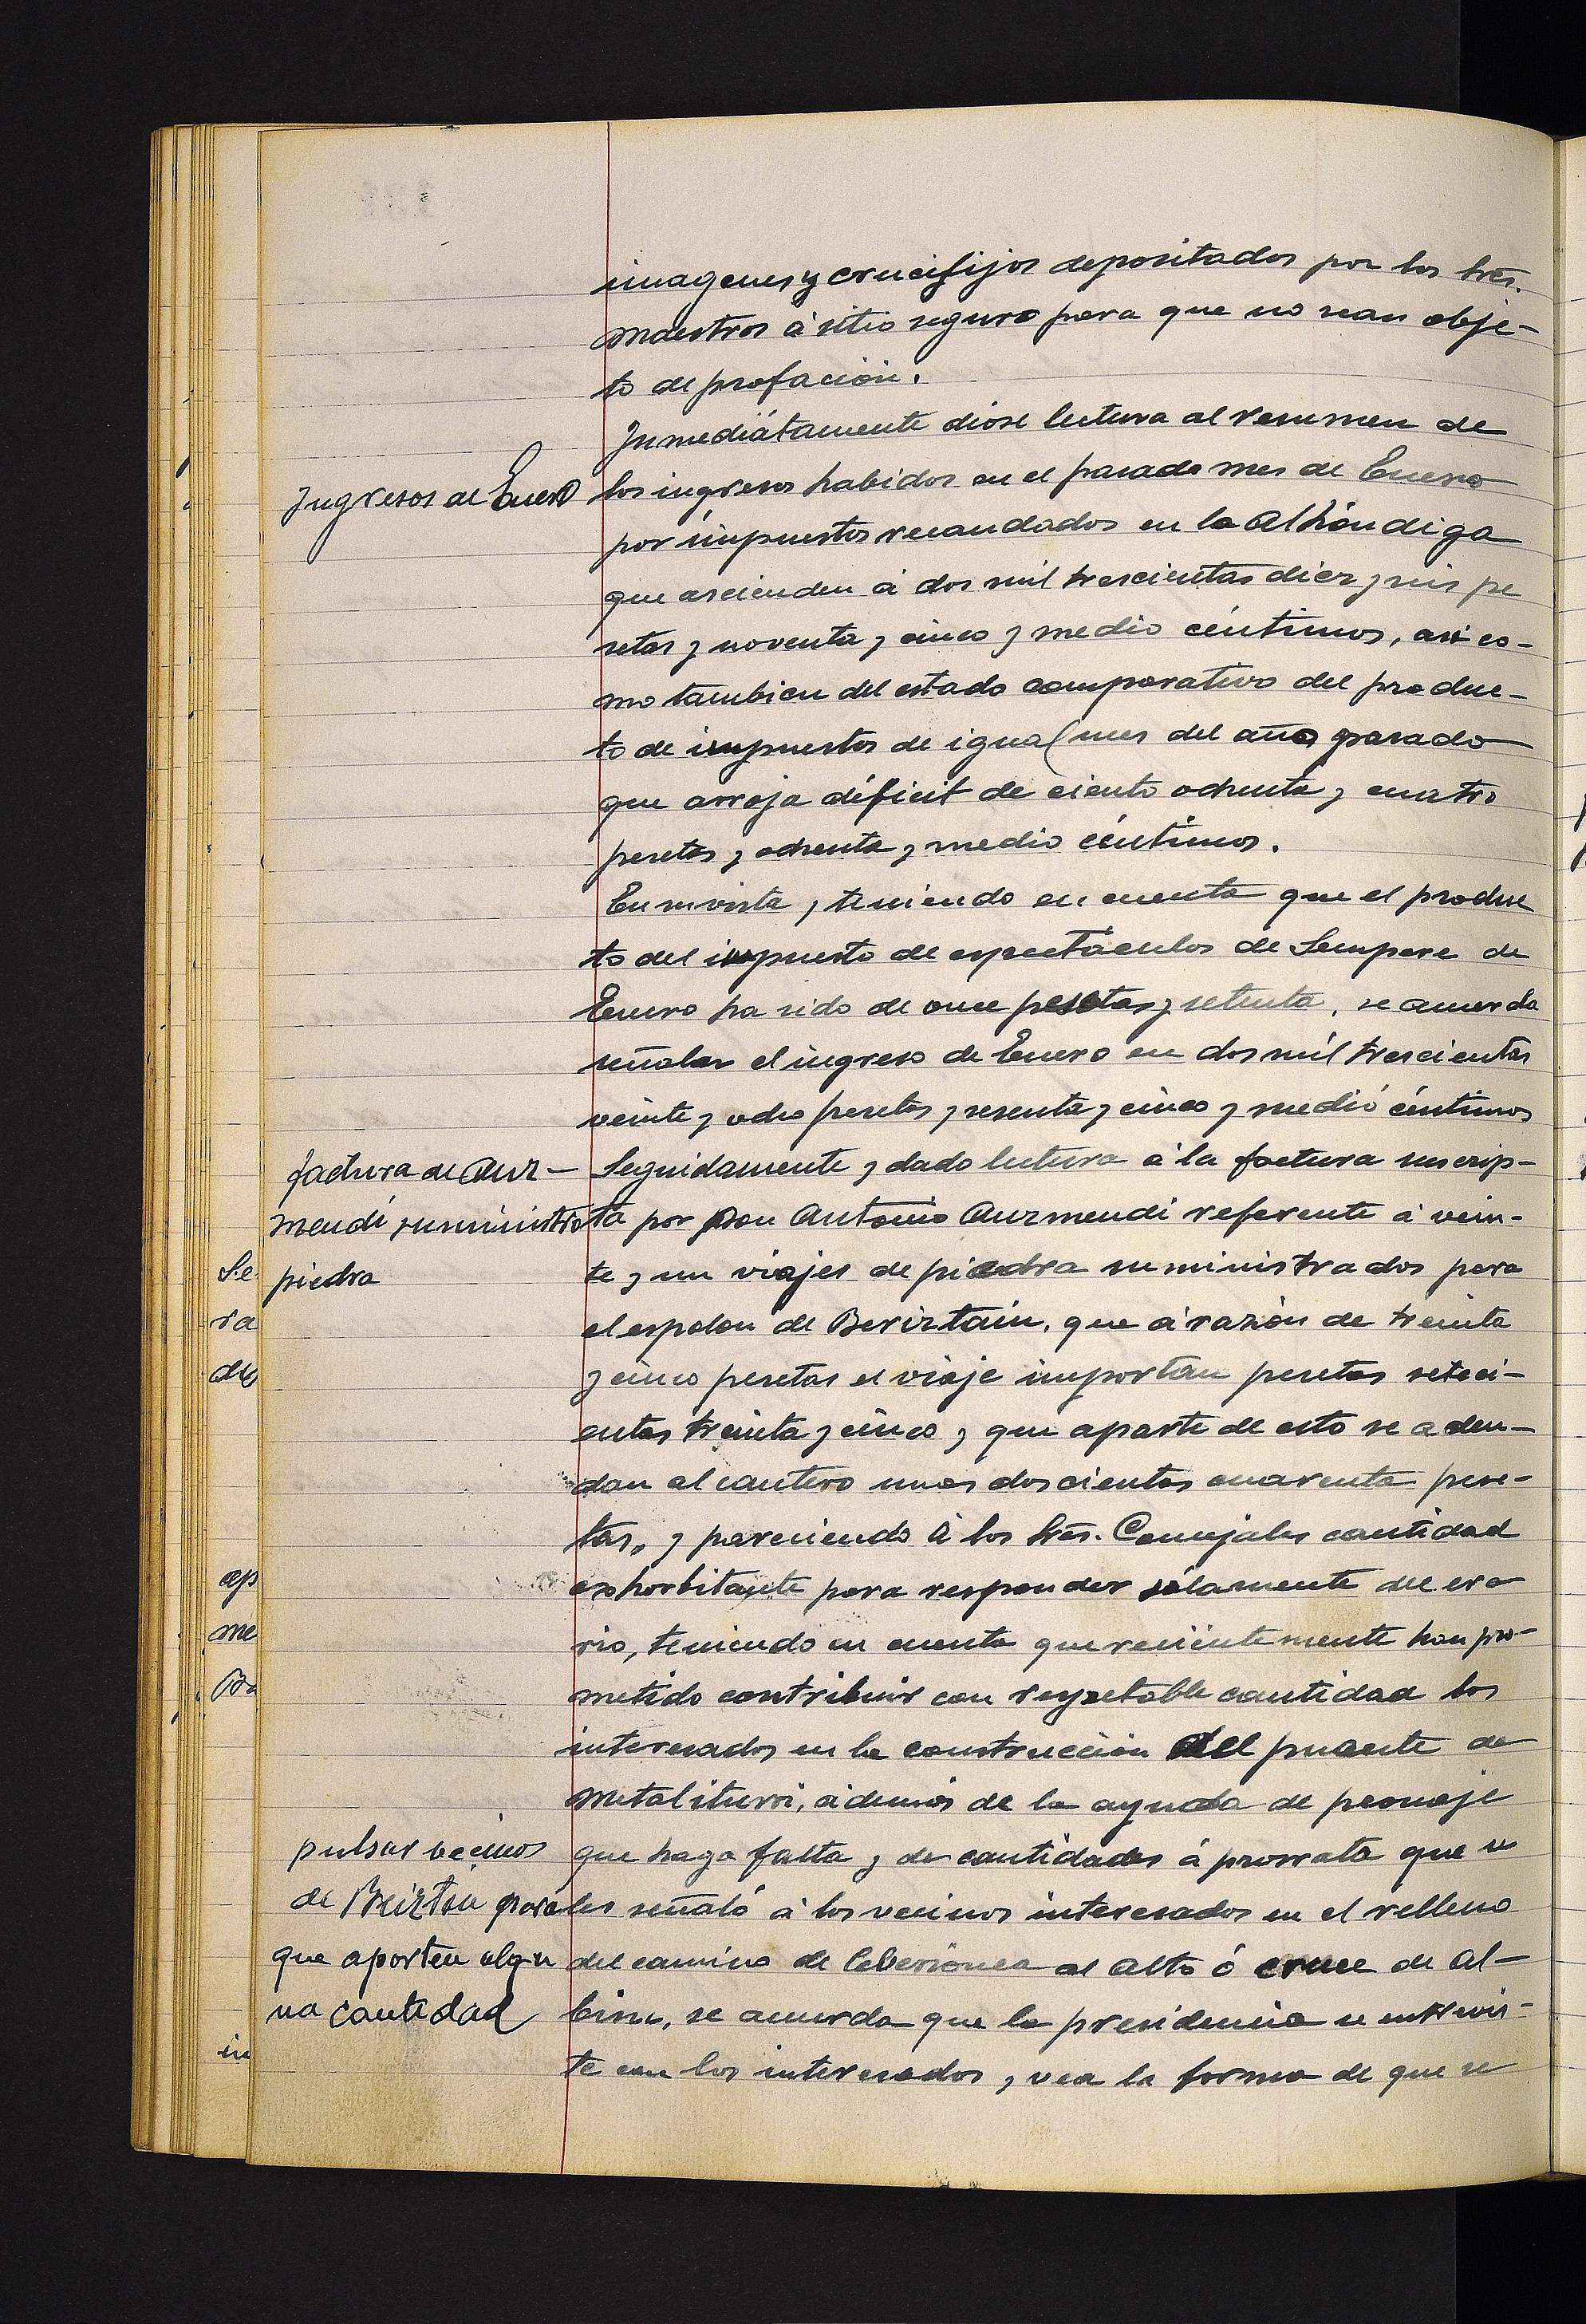 imagenes y crucifijos depositados por los Sres.
maestros á sitio seguro para que no sean obje-
to de profación.
Inmediátamente diose lectura al resumen de
Ingresos de Enero
los ingresos habidos en el pasado mes de Enero
por impuestos recaudados en la Alhóndiga
que ascienden á dos mil trescientas diez y seis pe
setas y noventa y cinco y medio céntimos, así co-
mo tambien del estado comparativo del produc-
to de impuestos de igual mes del año pasado
que arroja déficit de ciento ochenta y cuatro
pesetas y ochenta y medio céntimos.
En su vista y teniendo en cuenta que el produc
to del impuesto de espectáculos de Sempere de
Enero ha sido de once pesetas y setenta, se acuerda
señalar el ingreso de Enero en dos mil trescientas
veinte y ocho pesetas y sesenta y cinco y medio céntimos
factura de Auz-
mendi suministro
piedra
Seguidamente y dado lectura á la factura suscrip-
ta por Don Antonio Auzmendi referente á vein-
te y un viajes de piedra suministrados para
el espolon de Beriztain, que á razón de treinta
y cinco pesetas el viaje importan pesetas seteci-
entas treinta y cinco y que aparte de esto se adeu-
dan al cantero unas doscientas cuarenta pese-
tas, y pareciendo á los Sres. Concejales cantidad
exhorbitante para responder sólamente del era
rio, teniendo en cuenta que recientemente han pro-
metido contribuir con respetable cantidad los
interesados en la construcción del puente de
Metaliturri, además de la ayuda de peonaje
pulsar vecinos
de Beizten para
que aporten algu
na cantidad
que haga falta y de cantidades á prorrata que se
les señaló á los vecinos interesados en el relleno
del camino de al alto ó cruce de Al-
bisu, se acuerda que la presidencia se entrevis-
te con los interesados y vea la forma de que se
Se
ra
ap
me
Ba
in